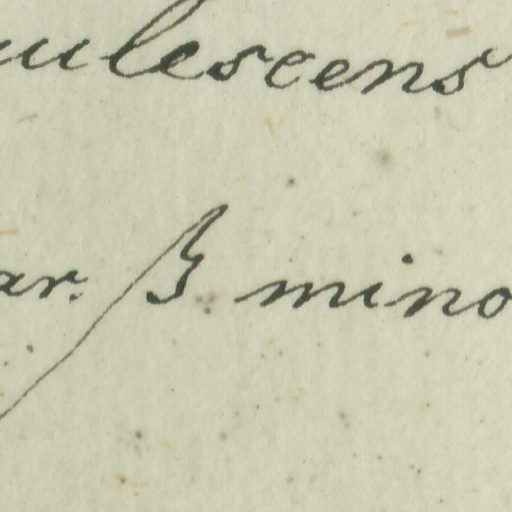 ulescens
ar. β. mino